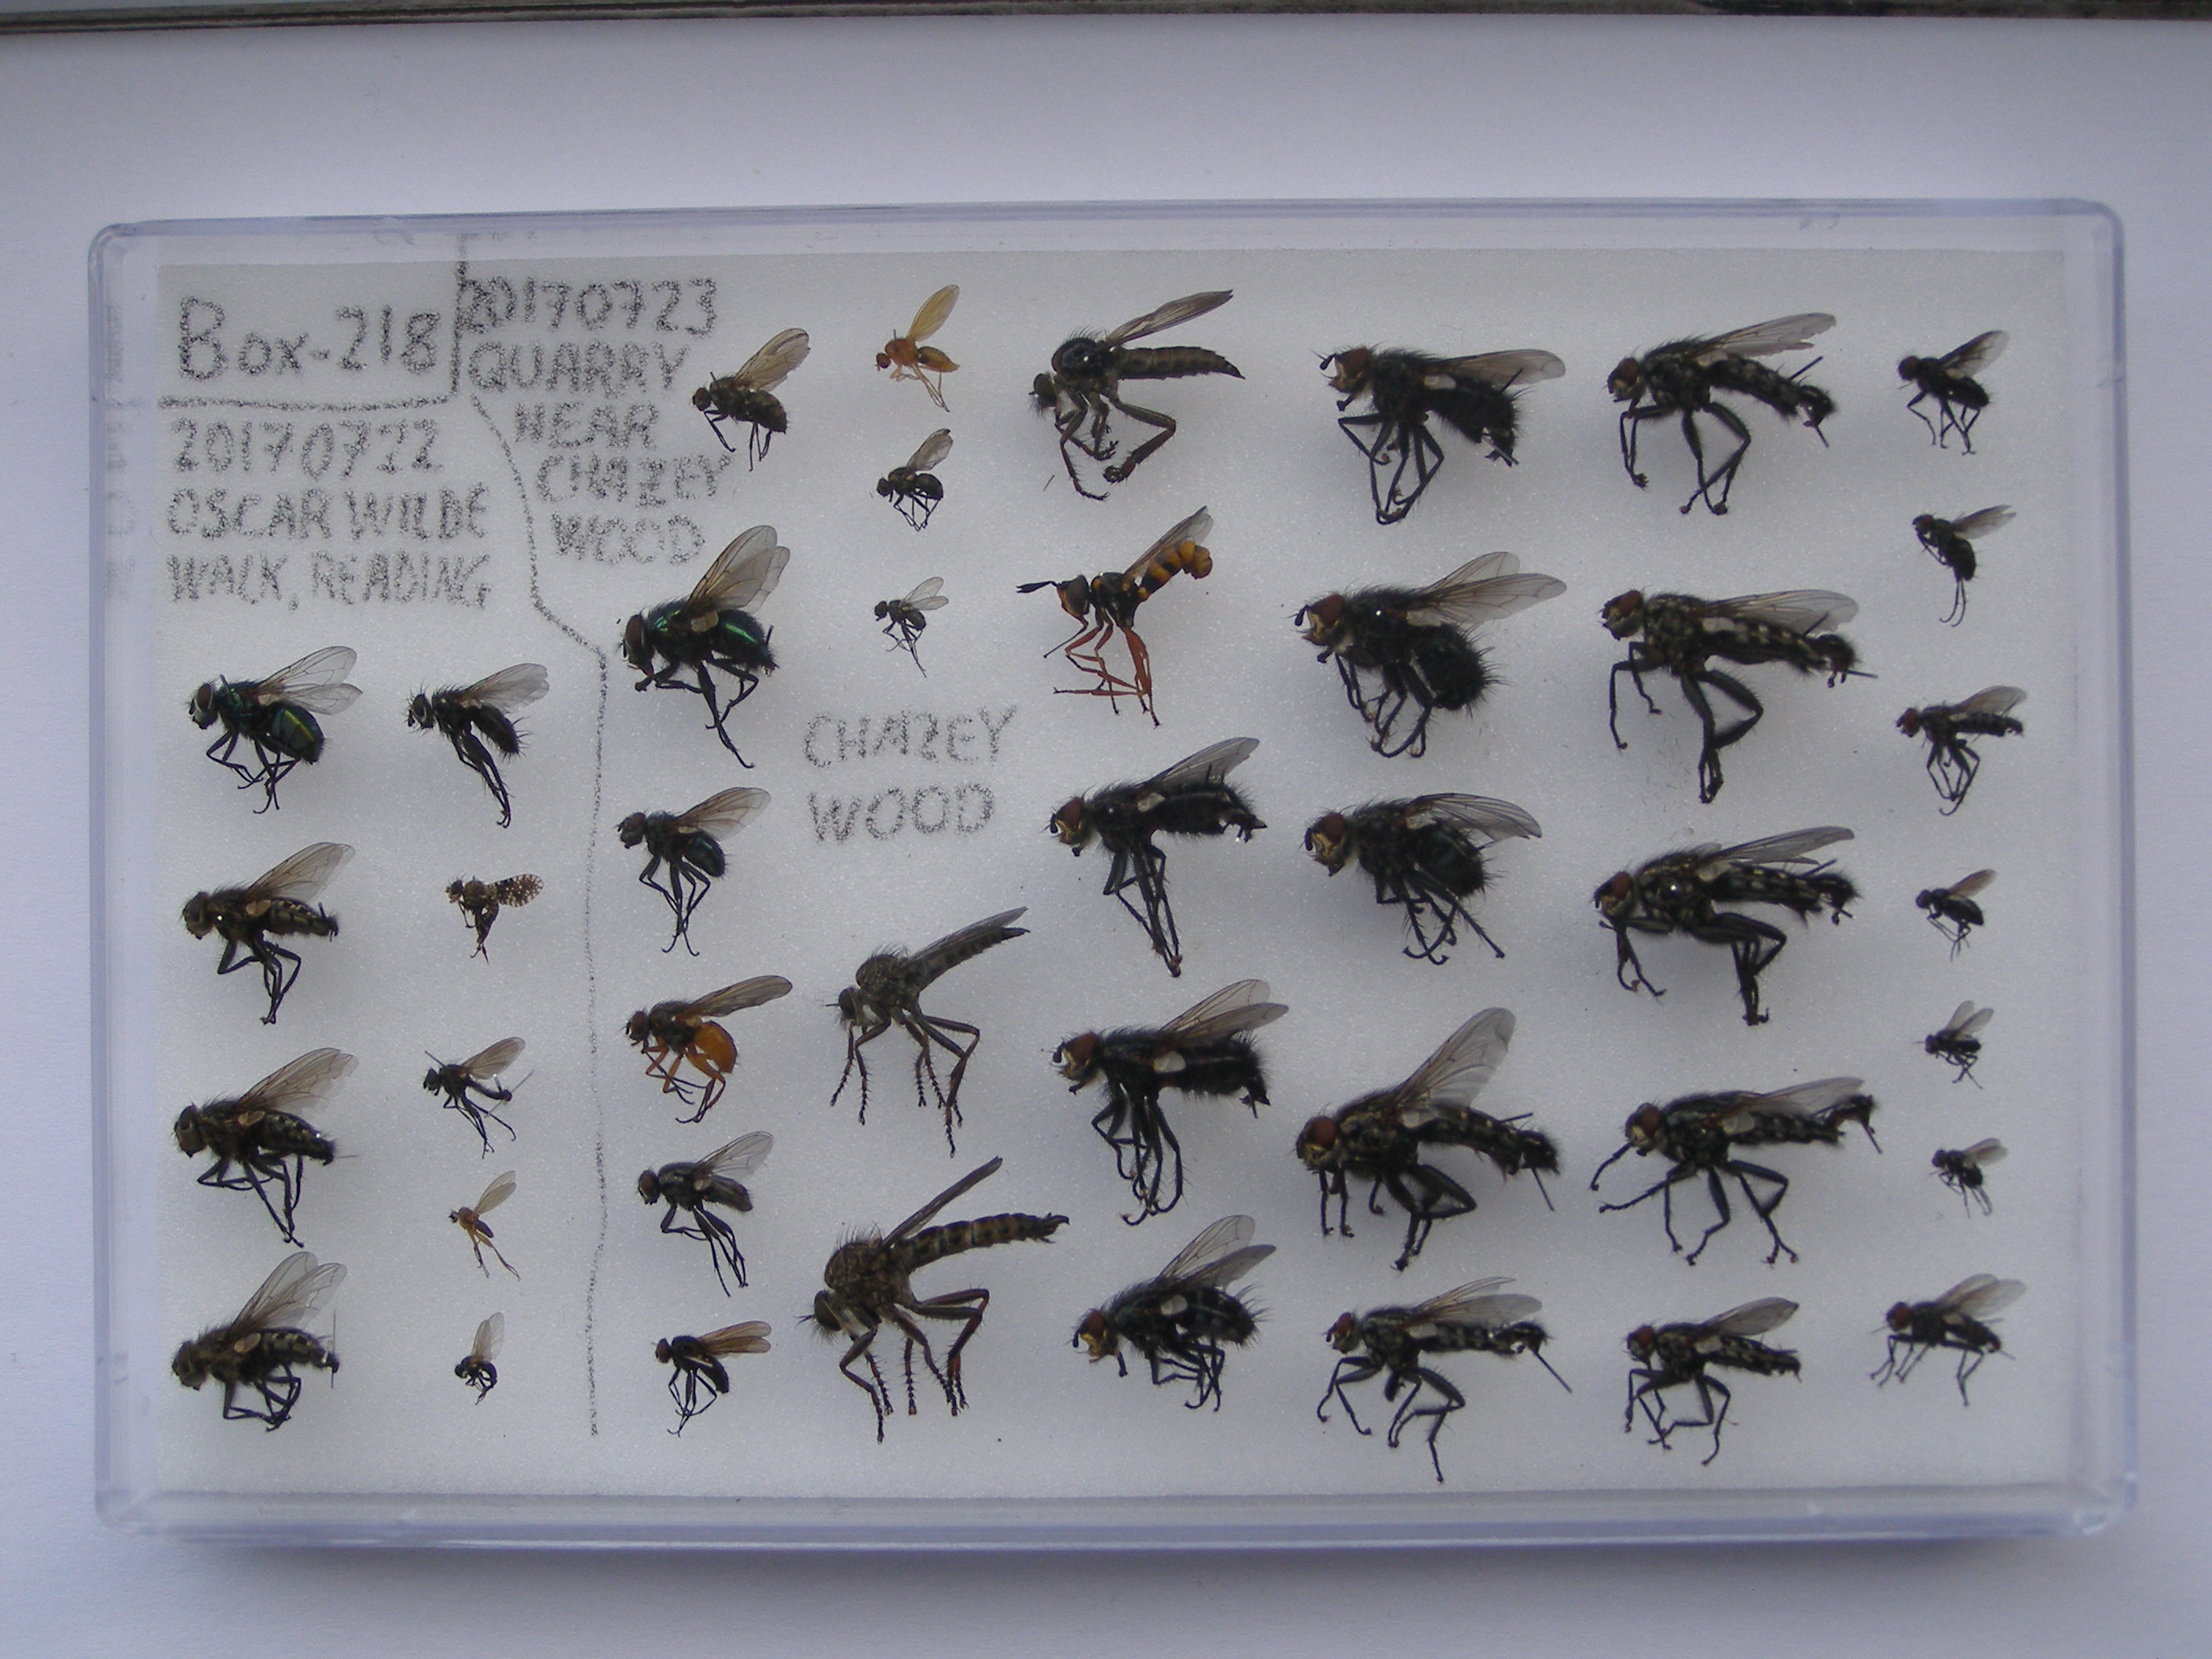 Box-218
20170722
OSCAR WILDE
WALK, READING
20170723
QUARRY
NEAR
CHAZEY
WOOD
CHAZEY
WOOD